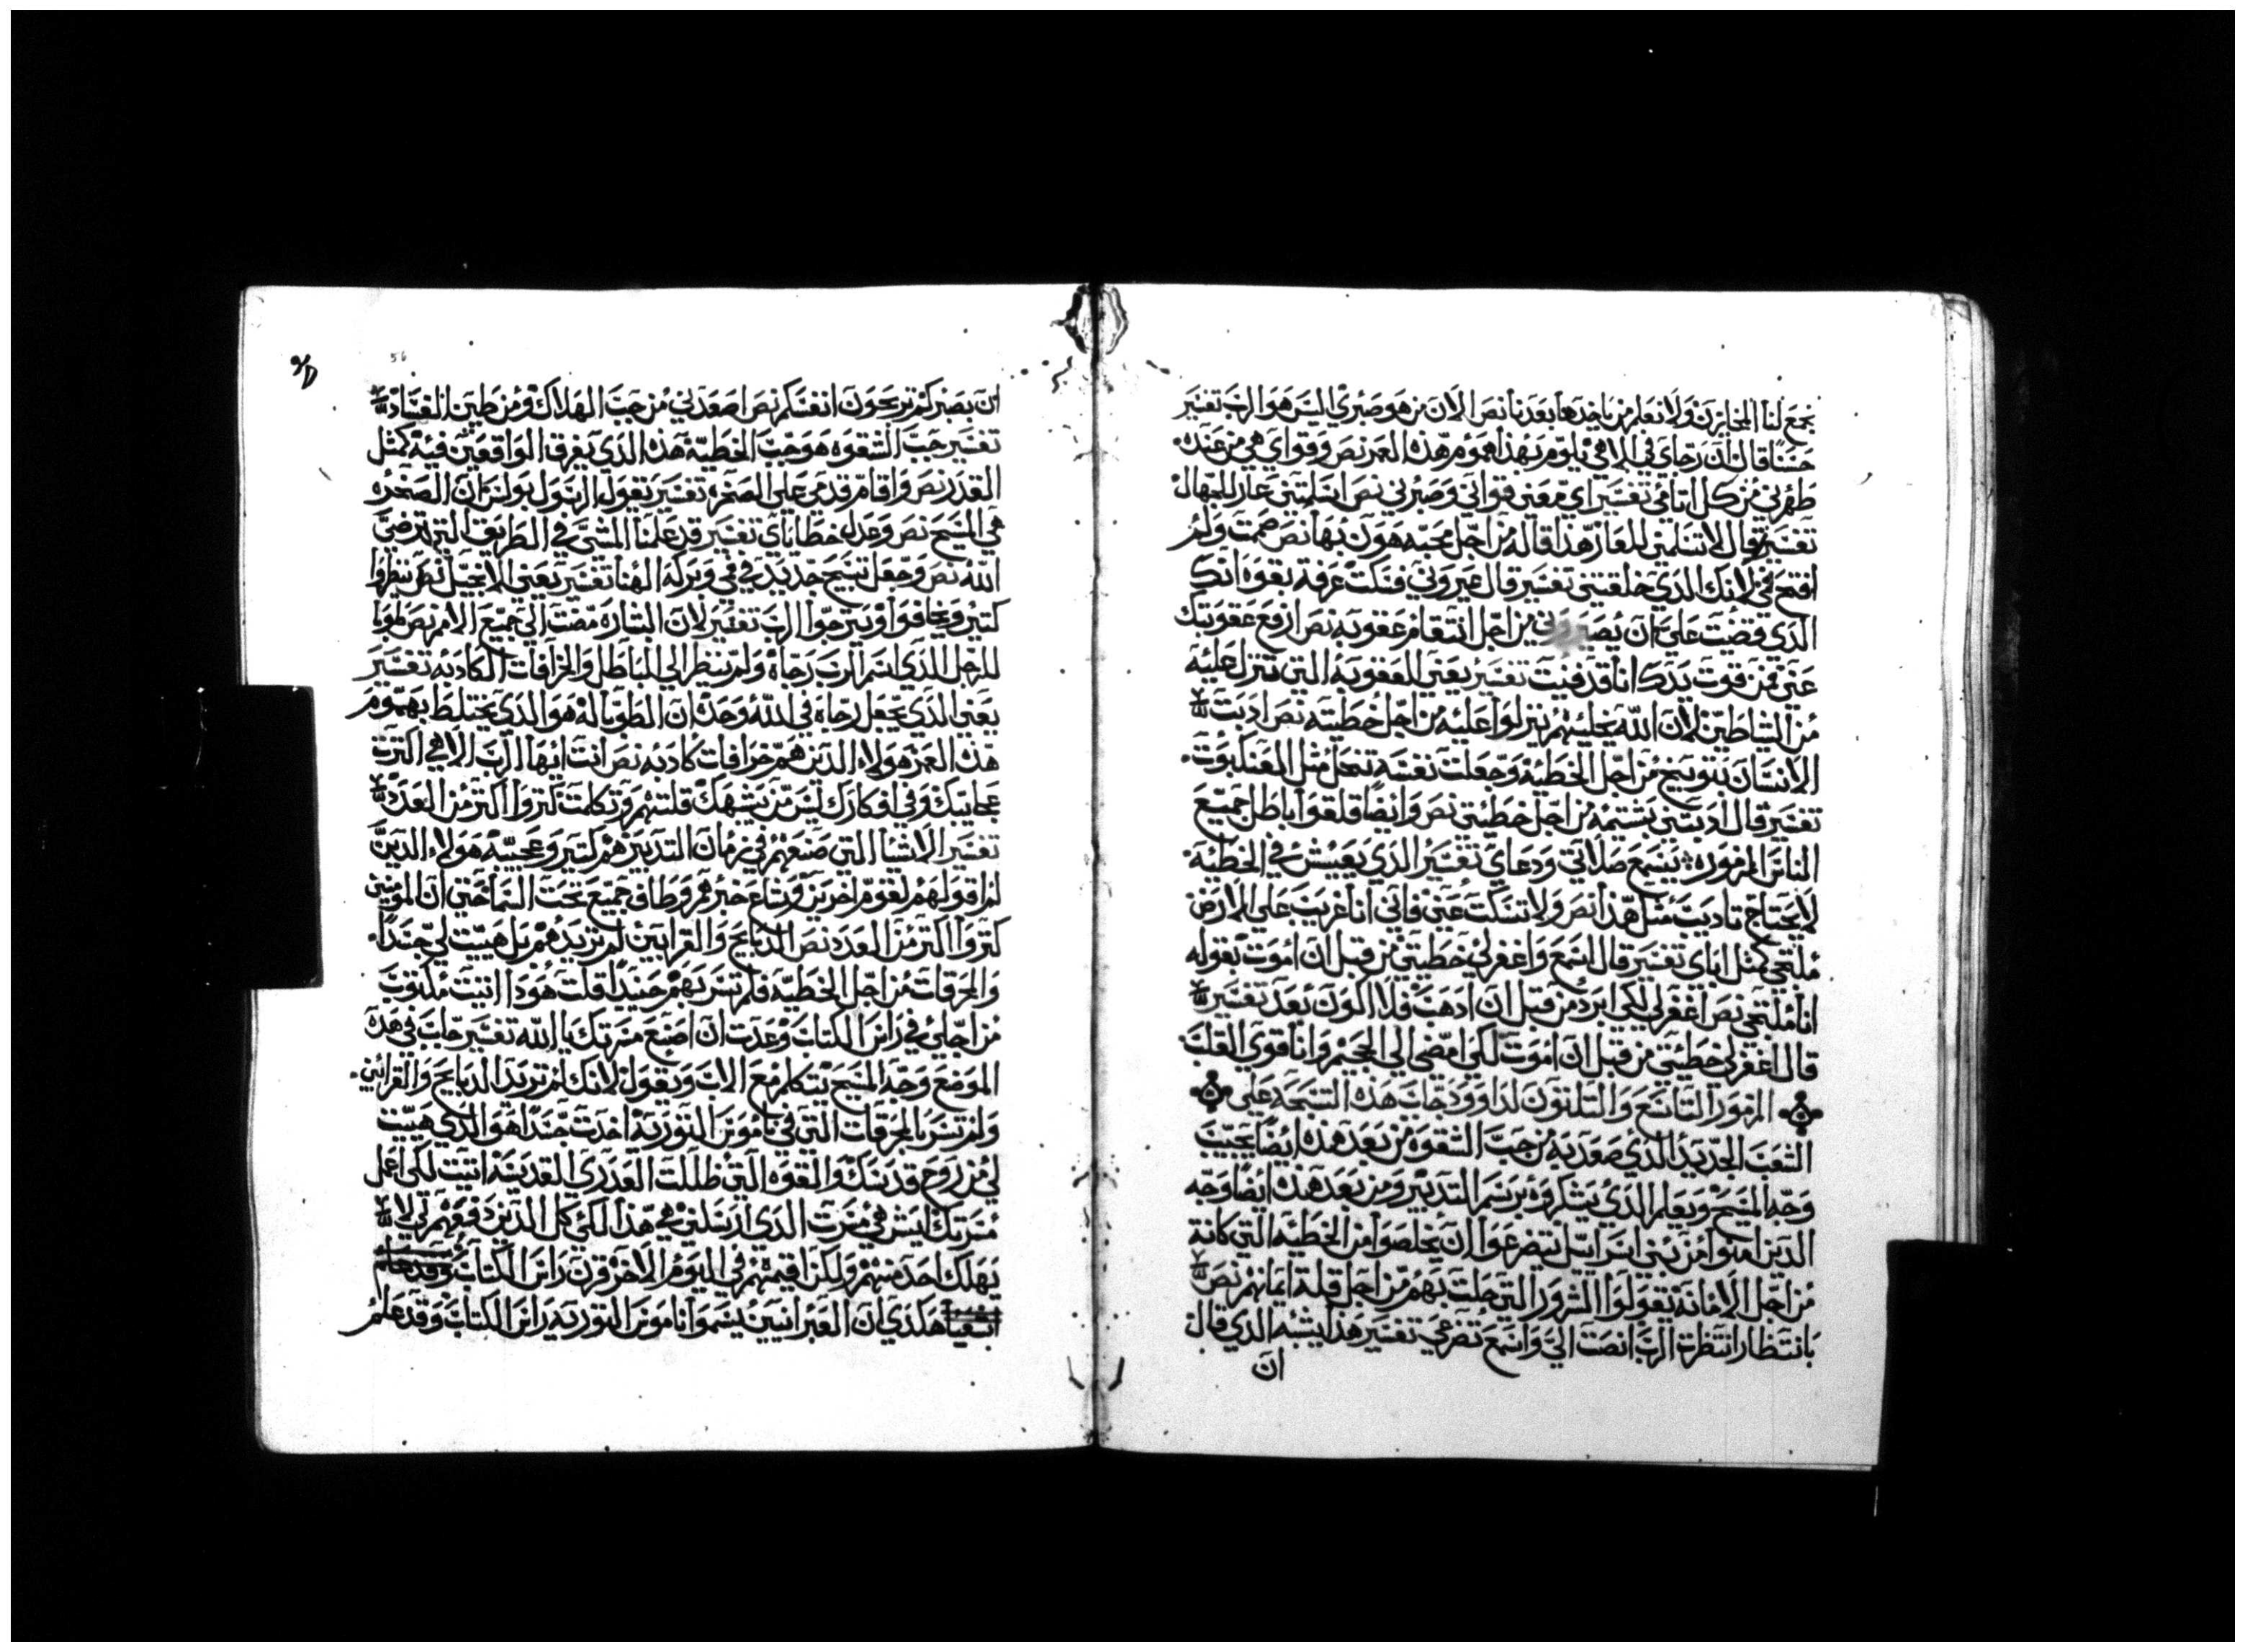 نجمع لنا المخازن ولا نعلم من ياخدها بعدنا نص الان من هو صبري اليس هو الرب تفسير
حسنا قال ان رجاي في الاهي يلوم بهذا هموم هذه العمر نص وقواي هي من عنده
طهرني من كل اتامي تفسير اي معني قواتي وصبرني نص اسلمتني عار للجهال
تفسير قال لا تسلمني للعار هذا قاله من اجل محبه هون بها نص صمت ولم
افتح في لانك الذي خلقتني تفسير قال عيروني فسكت عرفة بقوه انك
الذي قضت علي ان يصيروني من اجل انتقام عقوبه نص ارفع عقوبتك
عني فمن قوت يدك انا قد فنيت تفسير يعني للعقوبه التي تنزل عليه
من الشياطين لان الله يخليهم ينزلوا عليه من اجل خطيته نص ادبت
الانسان بتوبيخ من اجل الخطيه وجعلت نفسه تنحل مثل العنكبوت
تفسير قال ادبتني بشتمه من اجل خطيتي نص وايضا قلقوا باطل جميع
الناس المزموره يسمع صلاتي ودعاي تفسير الذي يعيش في الخطيه
لا يحتاج تاديب مثل هذا نص ولا تسكت عني فاني انا غريب علي الارض
ملتجي كمثل اباي تفسير قال اسمع واغفر لي خطيتي من قبل ان اموت بقوله
انا ملتجي نص اغفر لي لكي ابرد من قبل ان ادهب فلا اكون بعد تفسير
قال اغفر لي خطيتي من قبل ان اموت لكي امضي الي الجحيم وانا قوي القلب
المزمور التاسع والتلتون لداوود جاب هذه التسبحه علي
الشعب الجديد الذي صعد به من جب الشقوه من بعد هذه ايضا يجيب
وجه المسيح ويعلم الذي يشكروه برسم التدبير ومن بعد هذه ايضا وجه
الذين امنوا من بني اسراييل يتضرعوا ان يخلصوا من الخطيه التي كانة
من اجل الامانه يقولوا الشرور التي حلت بهم من اجل قلة ايمانهم نص
بانتظار انتظرت الرب انصت الي واسمع تضرعي تفسير هذا يشبه الذي قال
ان
56
ان بصبركم تربحون انفسكم نص اصعدني من جب الهلاك ومن طين الفساد
تفسير جب الشقوه هو جب الخطيه هذه الذي يغرق الواقعين فيه كمثل
القدر نص واقام قدمي علي الصخره تفسير يقول الرسول بولس ان الصخره
هي المسيح نص وعدل خطاياي تفسير قد علمنا المشي في الطريق التي ترضي
الله نص وجعل تسبيح جديد في في وبركه الهنا تفسير يعني الانجيل نص ينظروا
كتير ويخافوا ويترجوا الرب تفسير لان البشاره مضت الي جميع الامم نص طوبا
للرجل الذي اسم الرب رجاه ولم ينظر الي الباطل والخرافات الكادبه تفسير
يعني الذي يجعل رجاه في الله وحده ان الطوبا له هو الذي يختلط بهموم
هذه العمر هولاء الذين هم خرافات كادبه نص انت ايها الرب الاهي اكترت
عجايبك وفي افكارك ليس من يشبهك قلتهم وتكلمت كتروا اكتر من العدد
تفسير الاشيا التي صنعهم في زمان التدبير هم كتير وعجيبه هولاء الذين
لم اقولهم لقوم اخرين وشاع خبرهم وطاف جميع تحت السما حتي ان المومنين
كتروا اكتر من العدد نص الدبايح والقرابين لم تريدهم بل هييت لي جسدا
والمحرقات من اجل الخطيه فلم تسر بهم حينيدا قلت هودا اتيت مكتوب
من اجلي في راس الكتاب وعدت ان اصنع مسرتك يا الله تفسير جاب في هده
الموضع وجه المسيح يتكلم مع الاب ويقول لانك لم تريد الدبايح والقرابين
ولم تسر بالمحرقات التي في ناموس التوريه اخدت جسدا هو الذي هييت
لي من روح قدسك والقوه التي ظللت العدري القديسه اتيت لكي اعمل
مسرتك ليش هي مسرت الذي ارسلني هي هذا لكي كل الذين دفعهم لي لا
يهلك احد منهم ولكن اقيمهم في اليوم الاخر قرن راس الكتاب وقد علم
هكذي ان العبرانيين يسموا ناموس التوريه راس الكتاب وقد علم